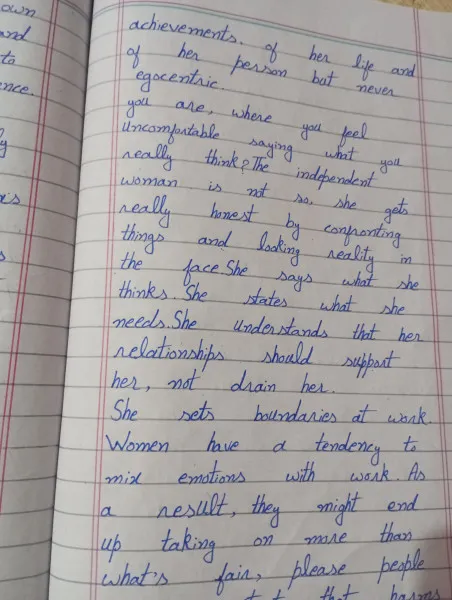 own
and
to
ence.
achievements. of her life and
of her person but never
egocentric.
you are, where you feel
uncomfortable saying what you
really think? The independent
woman is not so, she gets
really honest by confronting
things and looking reality in
the face. She says what she
thinks. She states what she
needs. She understands that her
relationships should support
her, not drain her.
She sets boundaries at work.
Women have a tendency to
mix emotions with work. As
a result, they might end
up taking on more than
what's fair, please people
that harms